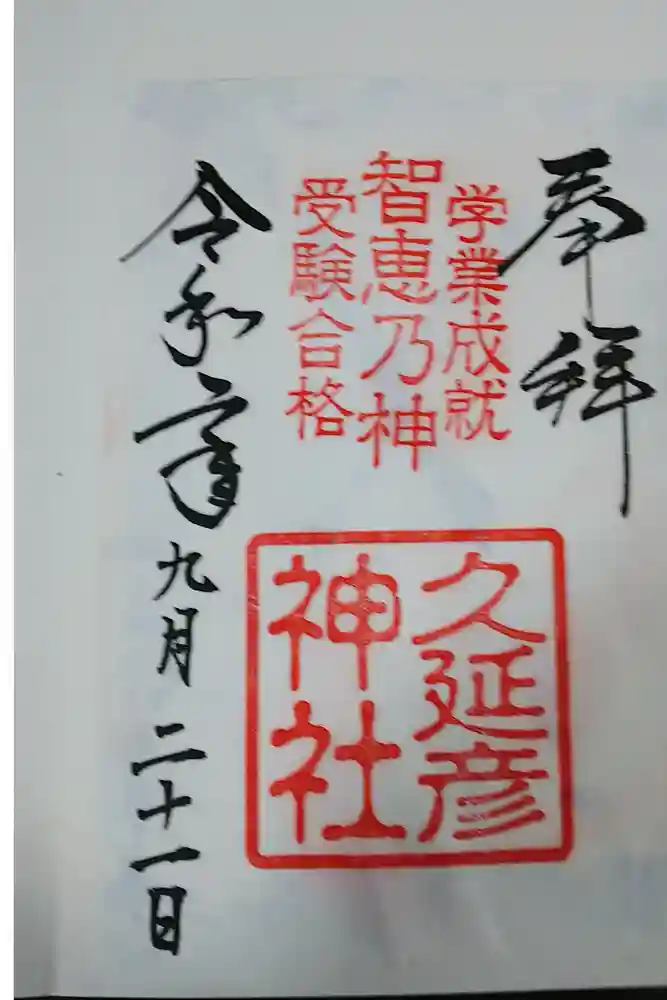 奉拝
学業成就
智恵乃神
受験合格
久延彦
神社
令和二年九月二十一日